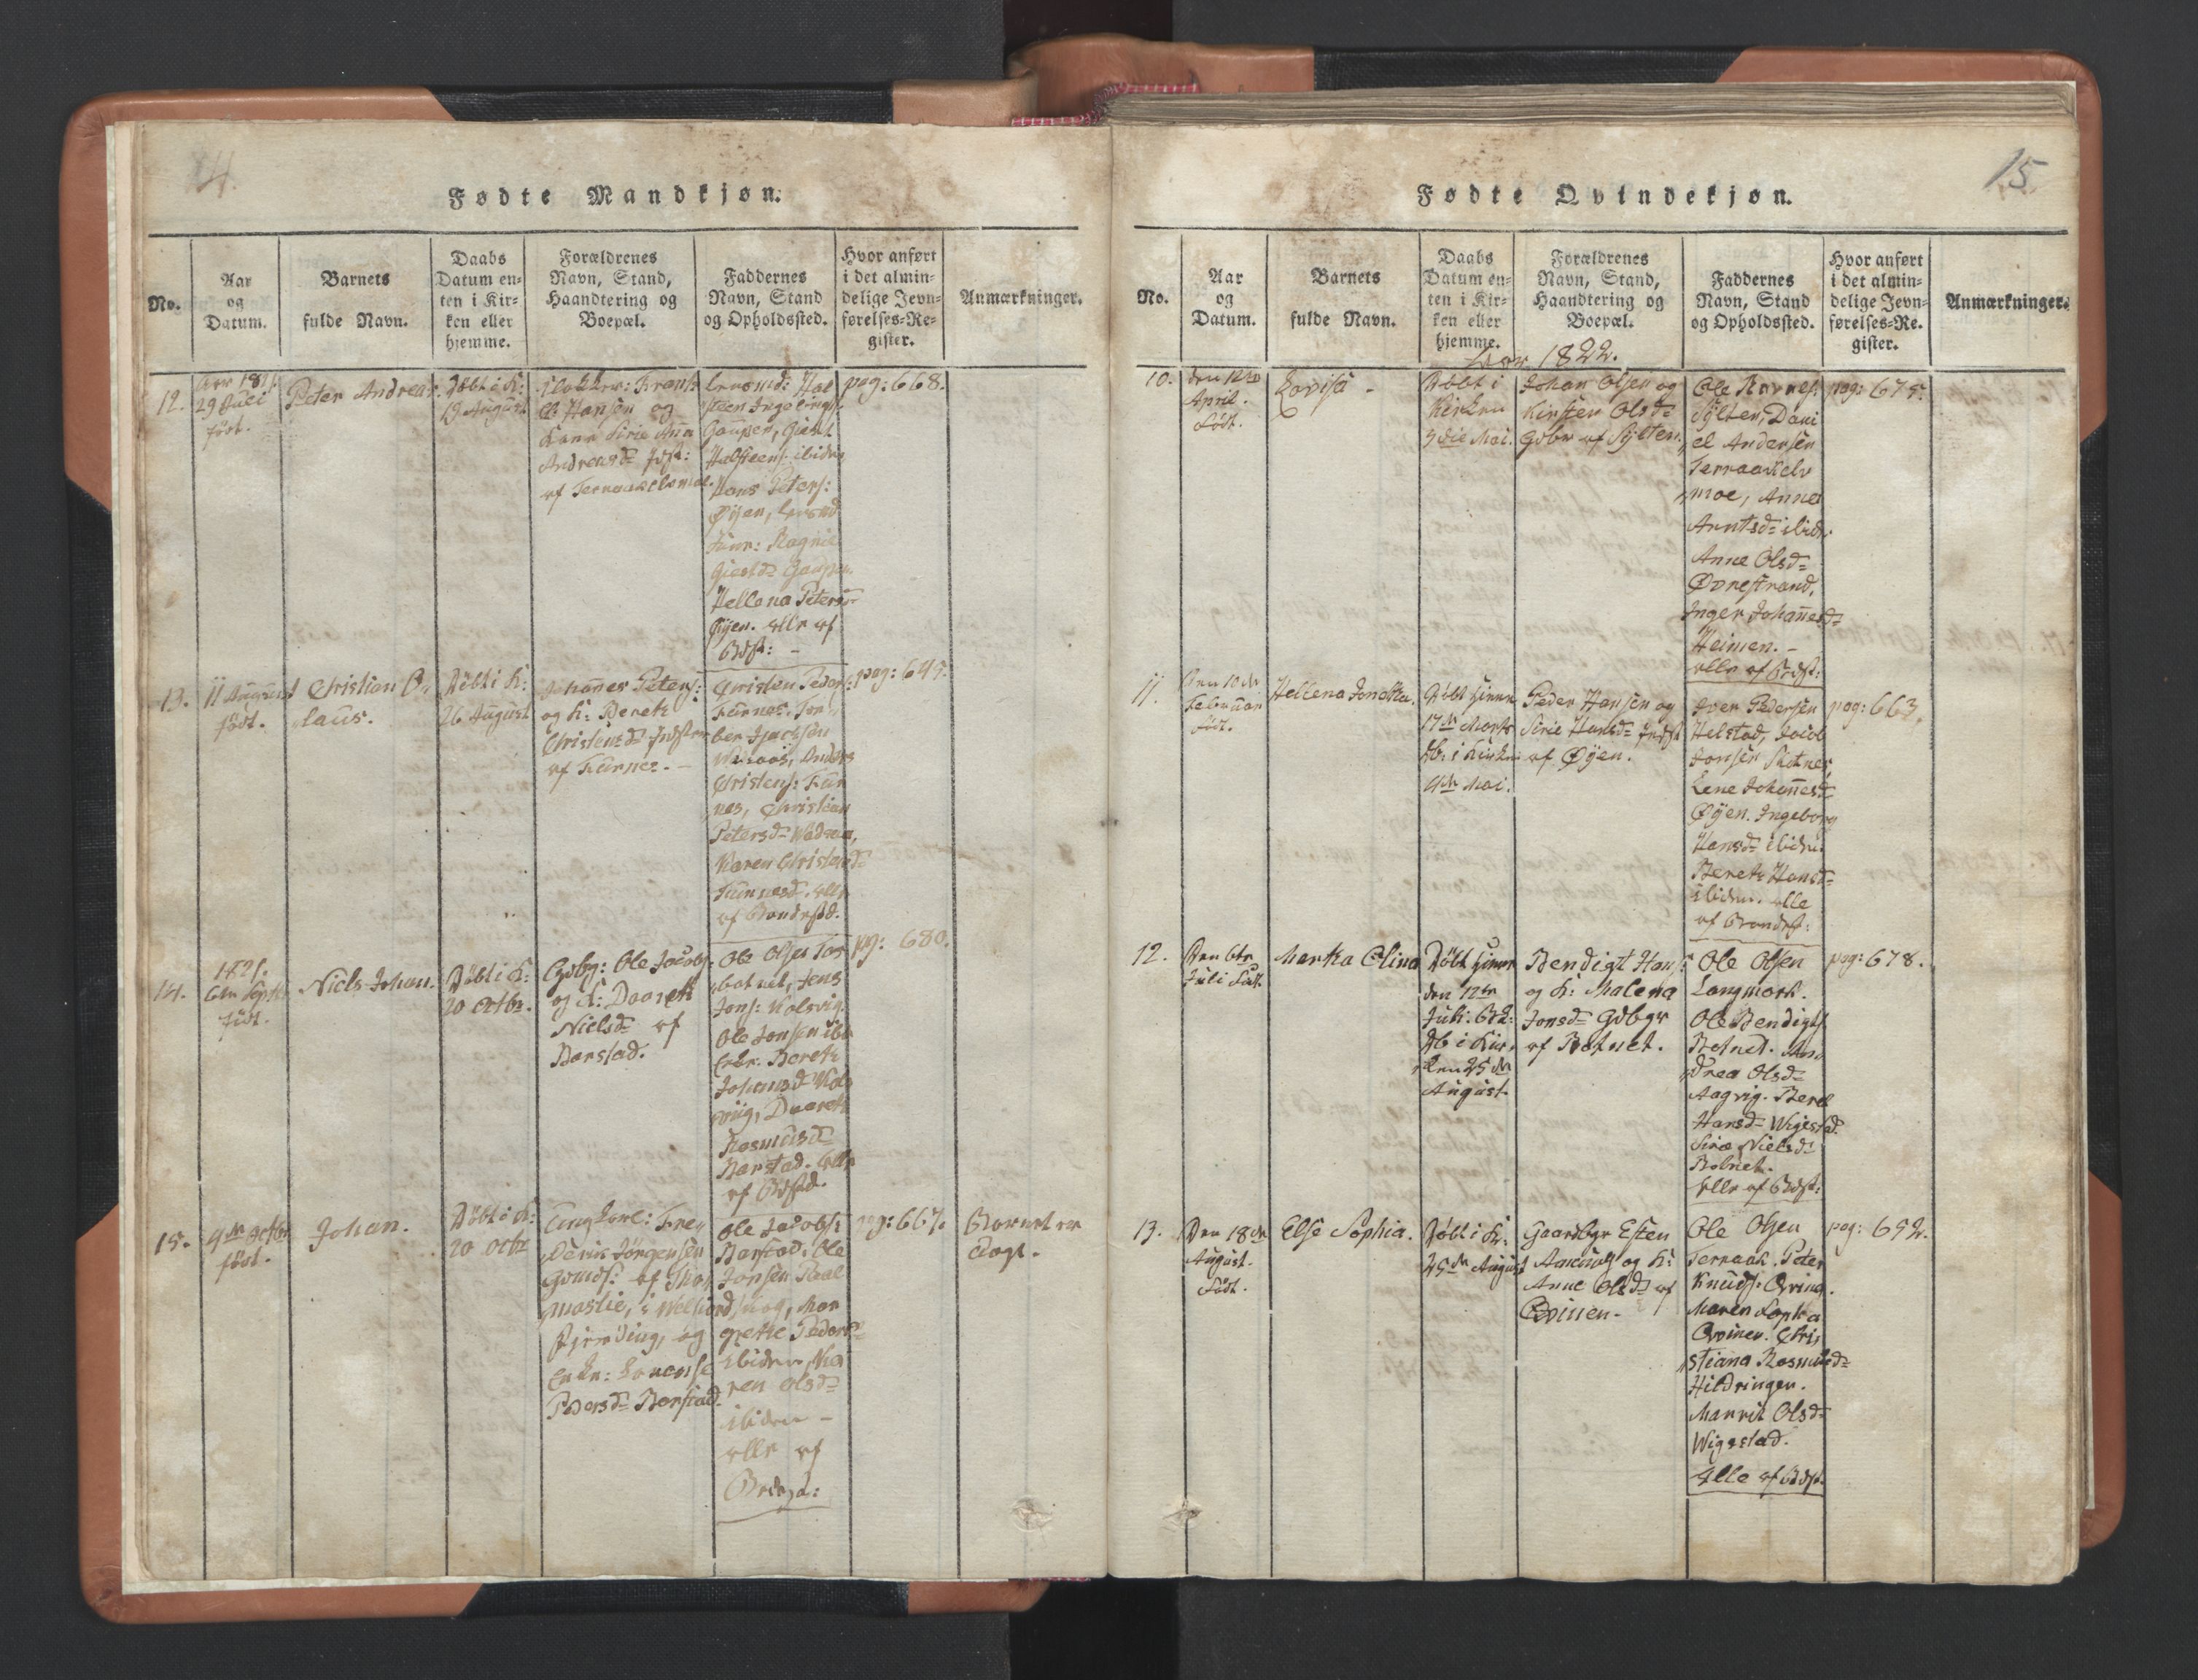 14.
Fødte Mandkjøn.
No.
Aar
og
Datum.
Barnets
fulde Navn.
Daabs
Datum en-
ten i Kir-
ken eller
hjemme.
Forældrenes
Navn, Stand,
Haandtering og
Boepæl.
Faddernes
Navn, Stand
og Opholdssted.
Hvor anført
i det almin-
delige Jevn-
førelses-Re-
gister.
Anmærkninger.
12.
Aar 1821.
29 Juli
født.
Peter Andreas.
Døbt i K:
19 August
Hansøn og
Kone Sirie Anna
Andreasd
af Terraakelvmoe.
Gaupen, Giert
Halsteens: ibidm
Hans Peters:
Øijen,
Giertsd Gaupen.
Hellena Petersd
Øijen. alle af
Bdst: -
pag: 668.
13.
11 August
født.
Christian O-
laus.
Døbt i K:
26 August
Johannes Peters:
og K: Bereth
Christensd
af Furnes. -
Christen Peders:
Furnes. Tor-
ber Isachsen
Anders
Christens: Fur
nes, Christian
Petersd
Karen Christensd
alle
af Bondestd.
pag: 645.
14.
1821.
6te Septbr
født.
Niels Johan.
Døbt i K:
20 Octbr.
Gdbg: Ole Jacobs:
og K: Daareth
Nielsd af
Barstad.
Ole Olsen Tor
botnet, Jens
Jons: Kolsvig.
Ole Jonsen ibm
Enke: Bereth
Johansd Kols
viig, Daareth
Rasmusd
Barstad. alle
af Bdstd.
pag: 680.
15.
4de Octbr
født.
Johan.
Døbt i K:
20 Octbr
Ungkarl: Fre-
derik Jørgensen
af
i Welfiord
Fjerding, og
Enke: Lorense
Pedersd Barstad.
Ole Jacobs:
Barstad. Ole
Jonsen
skog, Mar
grethe Pedersd
ibidem, Ka
ren Olsd
ibidem -
alle af
pag: 667.
Barnet er
15.
Fødte Qvindekjøn.
No.
Aar
og
Datum.
Barnets
fulde Navn.
Daabs
Datum en-
ten i Kir-
ken eller
hjemme.
Forældrenes
Navn, Stand,
Haandtering og
Boepæl.
Faddernes
Navn, Stand
og Opholdssted.
Hvor anført
i det almin-
delige Jevn-
førelses-Re-
gister.
Anmærkninger.
Aar 1822.
10.
den 12te
April.
Født.
Lovisa -
Døbt i
Kirken
3die Mai.
Johan Olsen og
Kirsten Olsd
Gdbr af Sylten.
Ole
Sylten, Dani
el Andersen
Terraakelv
moe, Anne
Arntsd ibidm
Anne Olsd
Øvrestrand,
Inger Johannesd
Heimen. -
alle af Bdst:
pag: 675.
11.
Den 10de
Februar
Født.
Hellena Jonetta.
Døbt hjemme
17de Marts
Db: i Kirken
4de Mai.
Peder Hansen og
Sirie Hansd
af Øijen.
Iver Pedersen
Helstad, Jacob
Jonsen Skotnes
Lene Johannesd
Øijen. Ingeborg
Hansd ibidm.
Bereth Hansd
ibidem. alle
af Bondest:
pag: 663.
12.
Den 6te
Juli Født.
Marta Elina
Døbt hjemme
den 12te
Juli:
Db i Kir-
ken 25de
August.
Bendigt Hans:
og K: Malena
Jonsd Gdbgr
af Botnet.
Ole Olsen
Langmork.
Ole Bendigts:
Botnet. An
drea Olsd
Aagvig. Beret
Hansd Wigestad.
Siræ Nielsd
Botnet.
Alle af Bdst:
pag: 678.
13.
Den 18de
August.
Født.
Else Sophia.
Døbt i K:
25de August
Gaardbgr Esten
Amunds og K:
Anne Olsd af
Qvinen. -
Ole Olsen
Terraak. Peter
Knuds: Qvina.
Maren
Qvinen. Chri
stiana Rasmusd
Hildringen.
Marrit Olsd
Wigestad.
Alle af Bdst.
pag: 692.